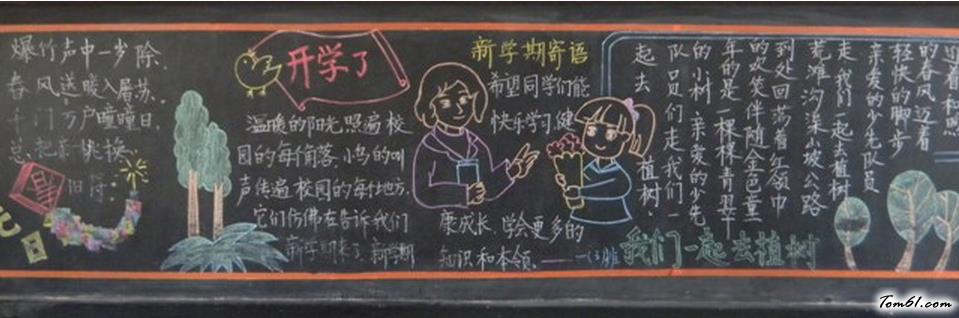 爆竹声中一岁除.
春风送暖入屠苏.
千门万户曈曈日.
总把新桃换
旧符.
开学了
温暖的阳光照遍校
园的每个角落.小鸟的叫
声传遍校园的每个地方.
它们仿佛在告诉我们
新学期来了.新学期
新学期寄语
希望同学们能
快乐学习,健
康成长,学会更多的
知识和本领.
我们一起去植树
迎着
的春风迈着
轻快的脚步
亲爱的少先队员
走.我们一起去植树
荒滩沟渠小坡公路
到处回荡着红领巾
的欢笑伴随金色童
年的是一棵棵青翠
的小树.亲爱的少先
队员们走.我们一
起去植树.
Tom61.com